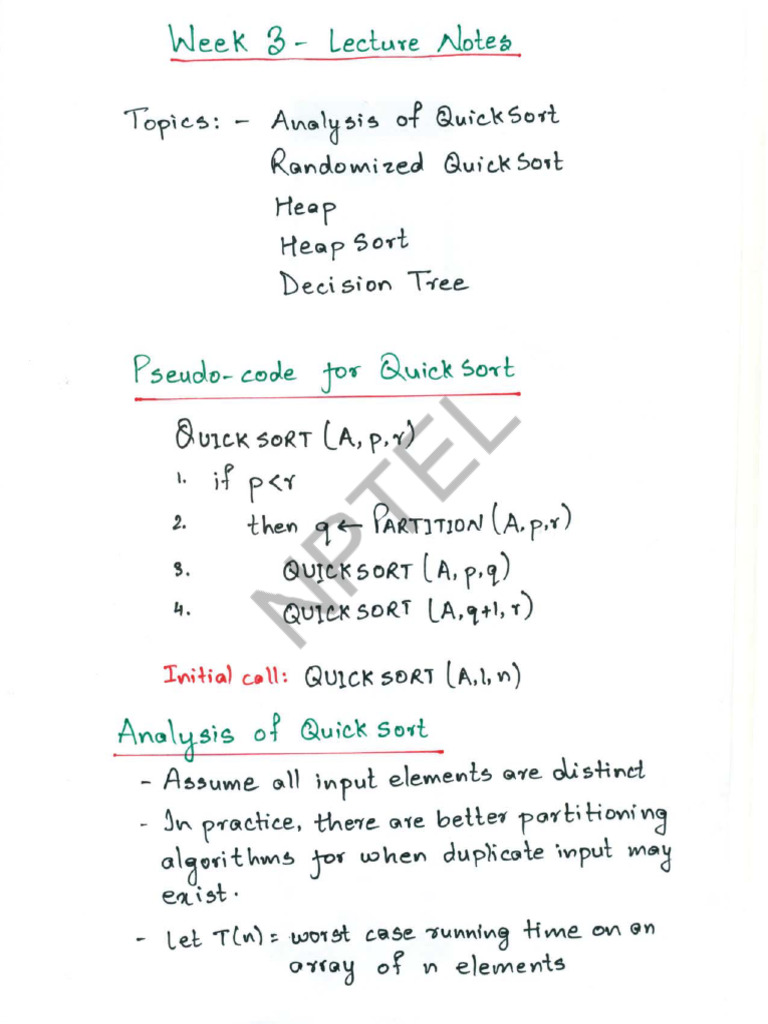 Week 3 - Lecture Notes
Topics: - Analysis of QuickSort
Randomized QuickSort
Heap
Heap Sort
Decision Tree
Pseudo-code for QuickSort
QUICKSORT (A, p, r)
1. if p<r
2. then q ← PARTITION (A, p, r)
3. QUICKSORT (A, p, q)
4. QUICKSORT (A, q+1, r)
Initial call: QUICKSORT (A, 1, n)
Analysis of QuickSort
- Assume all input elements are distinct
- In practice, there are better partitioning
algorithms for when duplicate input may
exist.
- Let T(n) = worst case running time on an
array of n elements
NPTEL